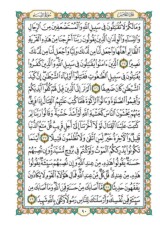 وما لكم لا تقاتلون في سبيل الله والمستضعفين من الرجال
والنساء والولدان الذين يقولون ربنا أخرجنا من هذه القرية
الظالم أهلها واجعل لنا من لدنك وليا واجعل لنا من لدنك
نصيرا الذين آمنوا يقاتلون في سبيل الله والذين كفروا
يقاتلون في سبيل الطاغوت فقاتلوا أولياء الشيطان إن كيد
الشيطان كان ضعيفا ألم تر إلى الذين قيل لهم كفوا أيديكم
وأقيموا الصلاة وآتوا الزكاة فلما كتب عليهم القتال إذا فريق
منهم يخشون الناس كخشية الله أو أشد خشية وقالوا ربنا لم
كتبت علينا القتال لولا أخرتنا إلى أجل قريب قل متاع الدنيا
قليل والآخرة خير لمن اتقى ولا تظلمون فتيلا أينما
تكونوا يدرككم الموت ولو كنتم في بروج مشيدة وإن تصبهم
حسنة يقولوا هذه من عند الله وإن تصبهم سيئة يقولوا
هذه من عندك قل كل من عند الله فمال هؤلاء القوم لا يكادون
يفقهون حديثا ما أصابك من حسنة فمن الله وما أصابك من
سيئة فمن نفسك وأرسلناك للناس رسولا وكفى بالله شهيدا
٩٠